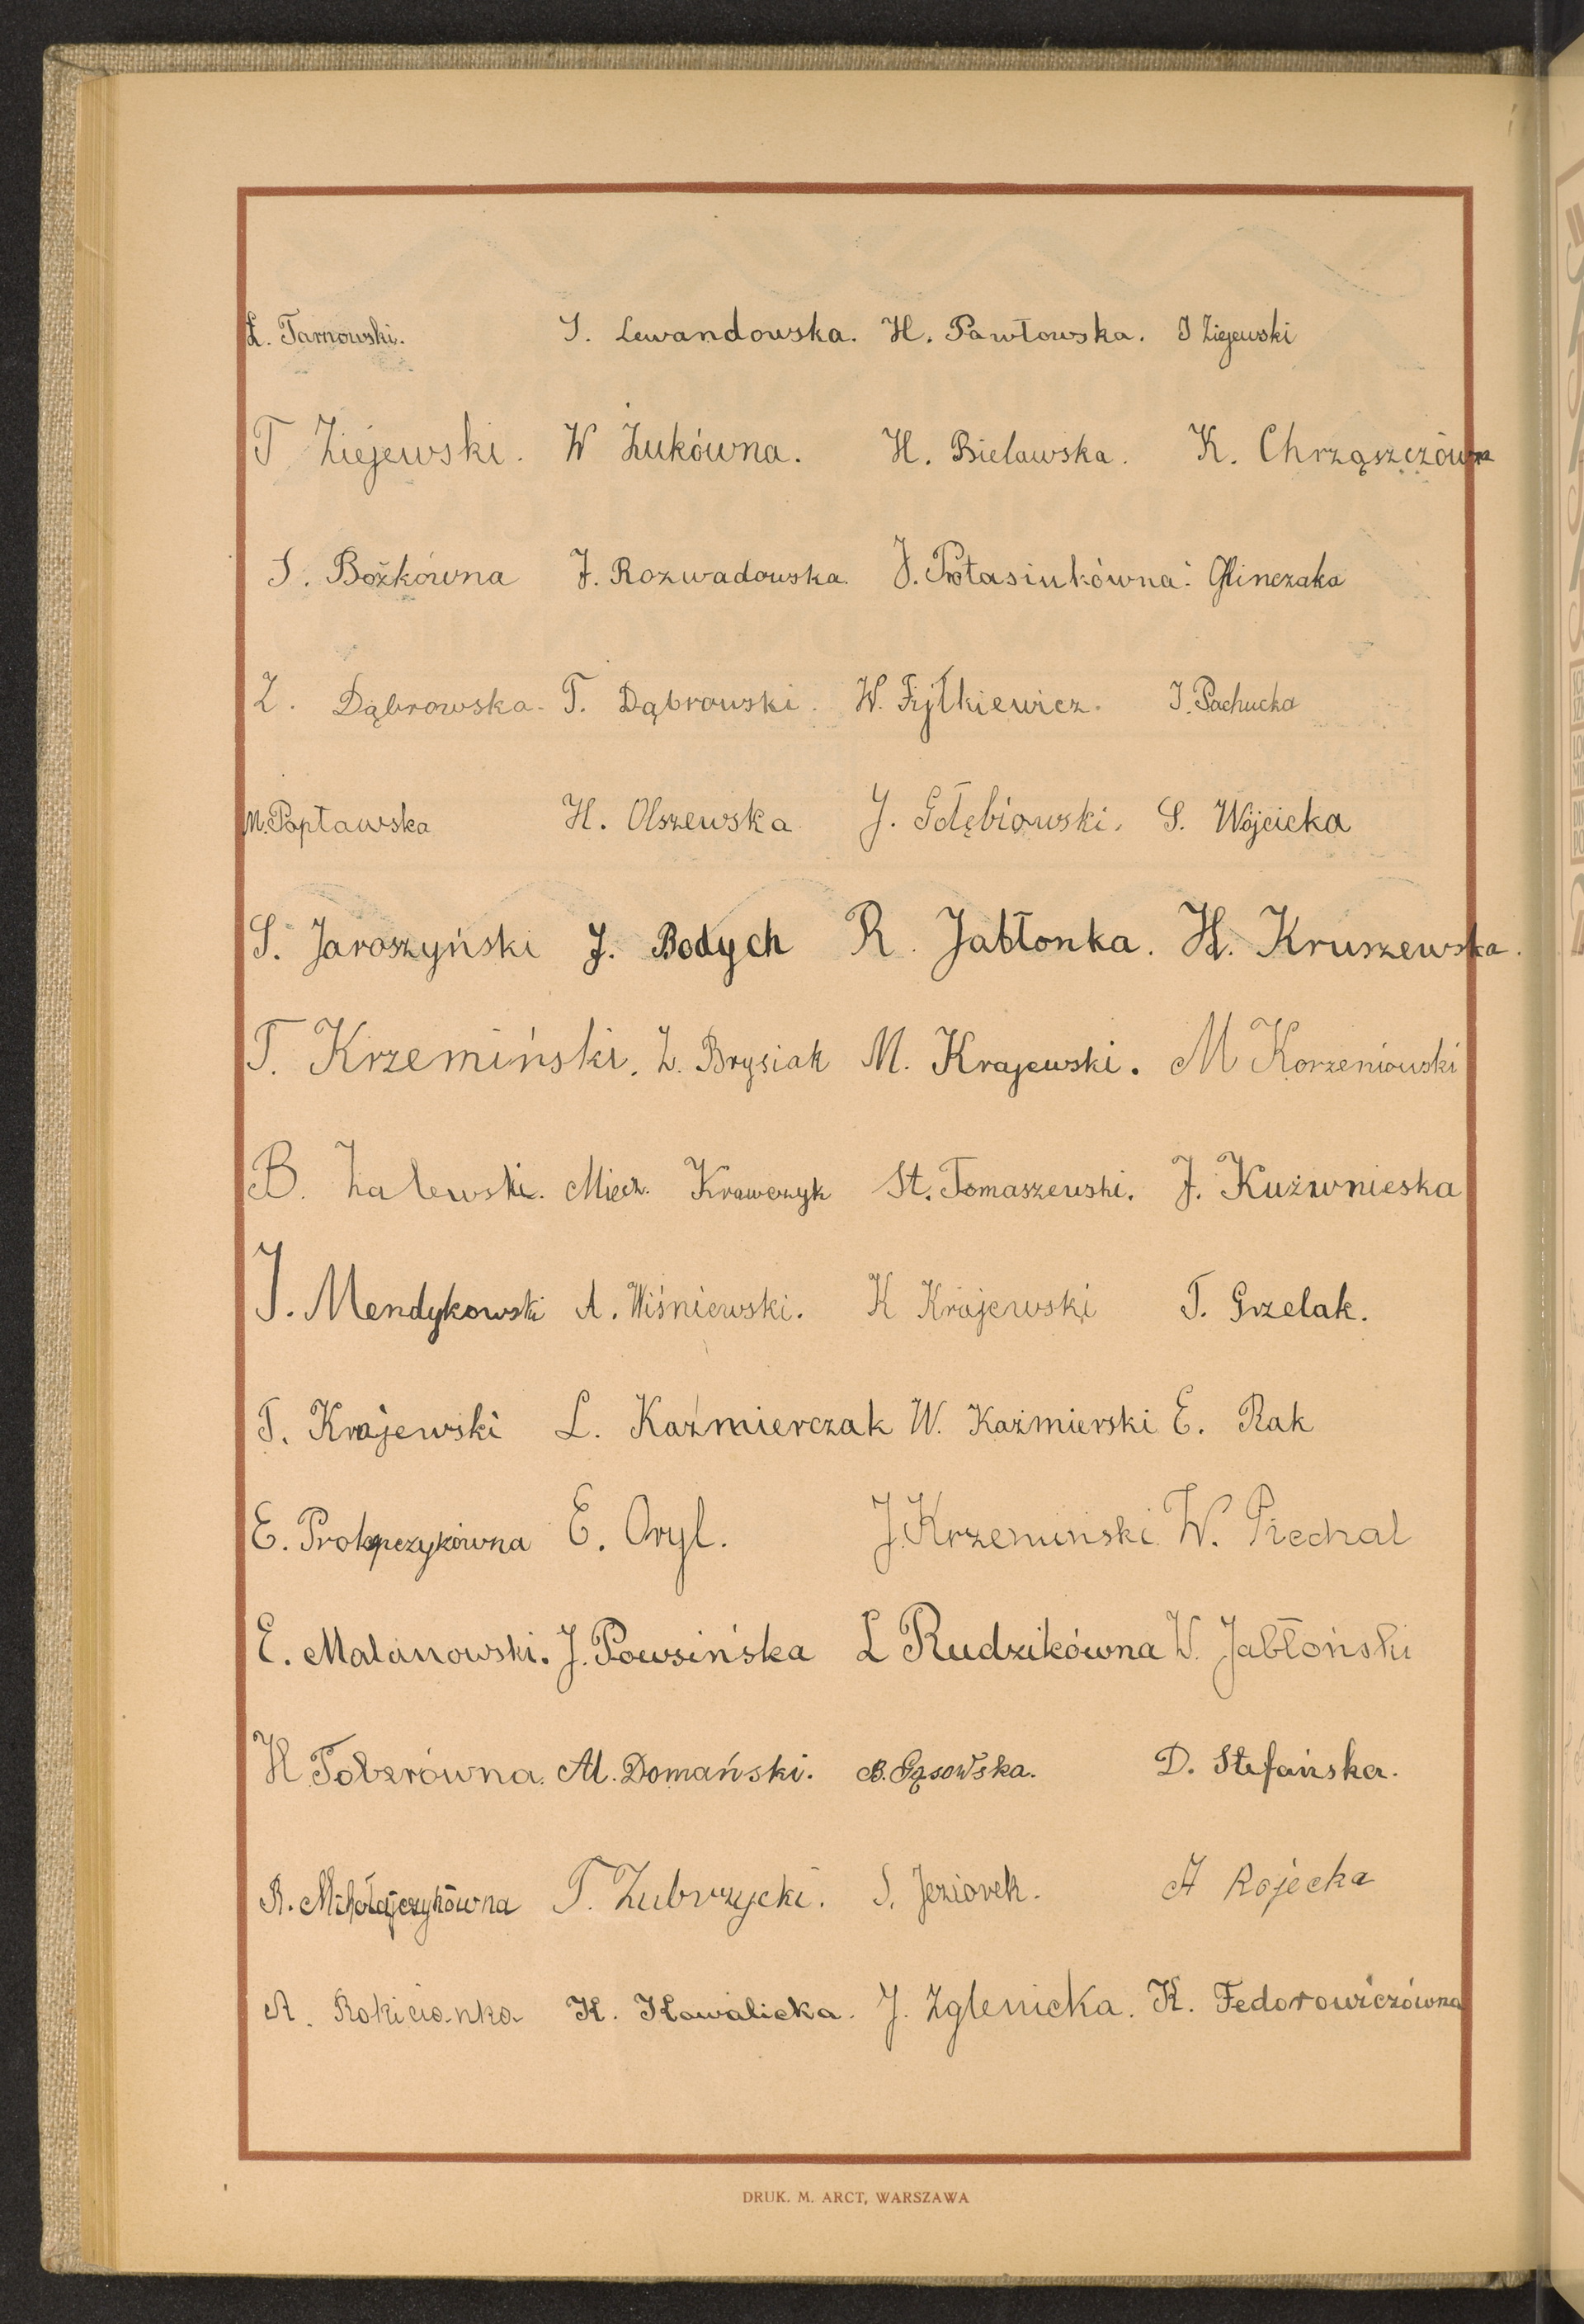 Ł. Tarnowski. S. Lewandowska. H. Pawłowska. J Ziejewski
T Ziejewski. W Żukówna. H. Bielawska. K. Chrząszczówna
S. Bożkówna J. Rozwadowska. J. Protasiukówna. Glinczaka
Z. Dąbrowska. T. Dąbrowski. W. Fyłkiewicz. J. Pachucka
M. Popławska H. Olszewska J. Gołębiowski. S. Wójcicka
S. Jaroszyński J. Bodych R. Jabłonka. H. Kruszewska.
T. Krzemiński. Z. Brysiak M. Krajewski. M Korzeniowski
B. Zalewski. Miecz. Krawczyk St. Tomaszewski. J. Kuźwnieska
J. Mendykowski A. Wiśniewski. K Krajewski T. Grzelak.
T. Krajewski L. Kaźmierczak W. Kaźmierski E. Rak
E. Prokopczykówna E. Oryl. J. Krzemiński W. Piechal
E. Malanowski. J. Powsińska L Rudzikówna W. Jabłoński
H. Al. Domański. B. Gąsowska. D. Stefańska.
R. Mikołajczykówna T. Zubrzycki. S. Jeziorek. A Rojecka
A. Rokicianka K. Kowalicka. J. Zglenicka. K. Fedorowiczówna
DRUK. M. ARCT, WARSZAWA